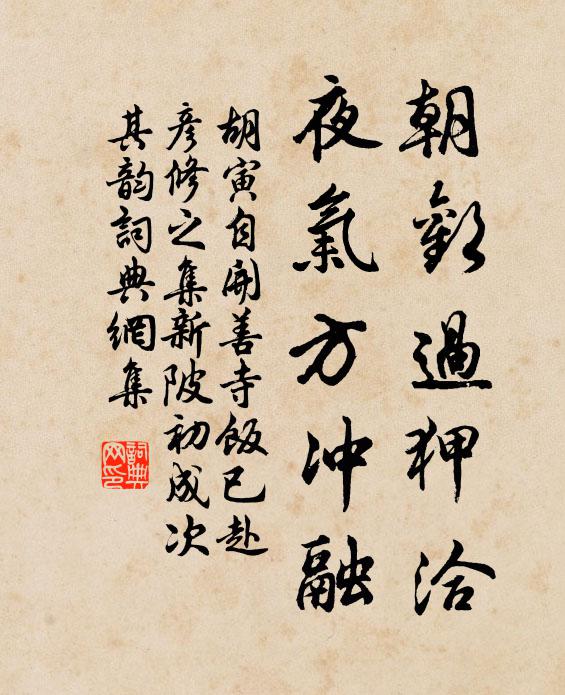 朝歡過狎洽
夜氣方沖融
胡寅自開善寺飯已赴
彦修之集新陂初成次
其韵詞典網集
詞典網印